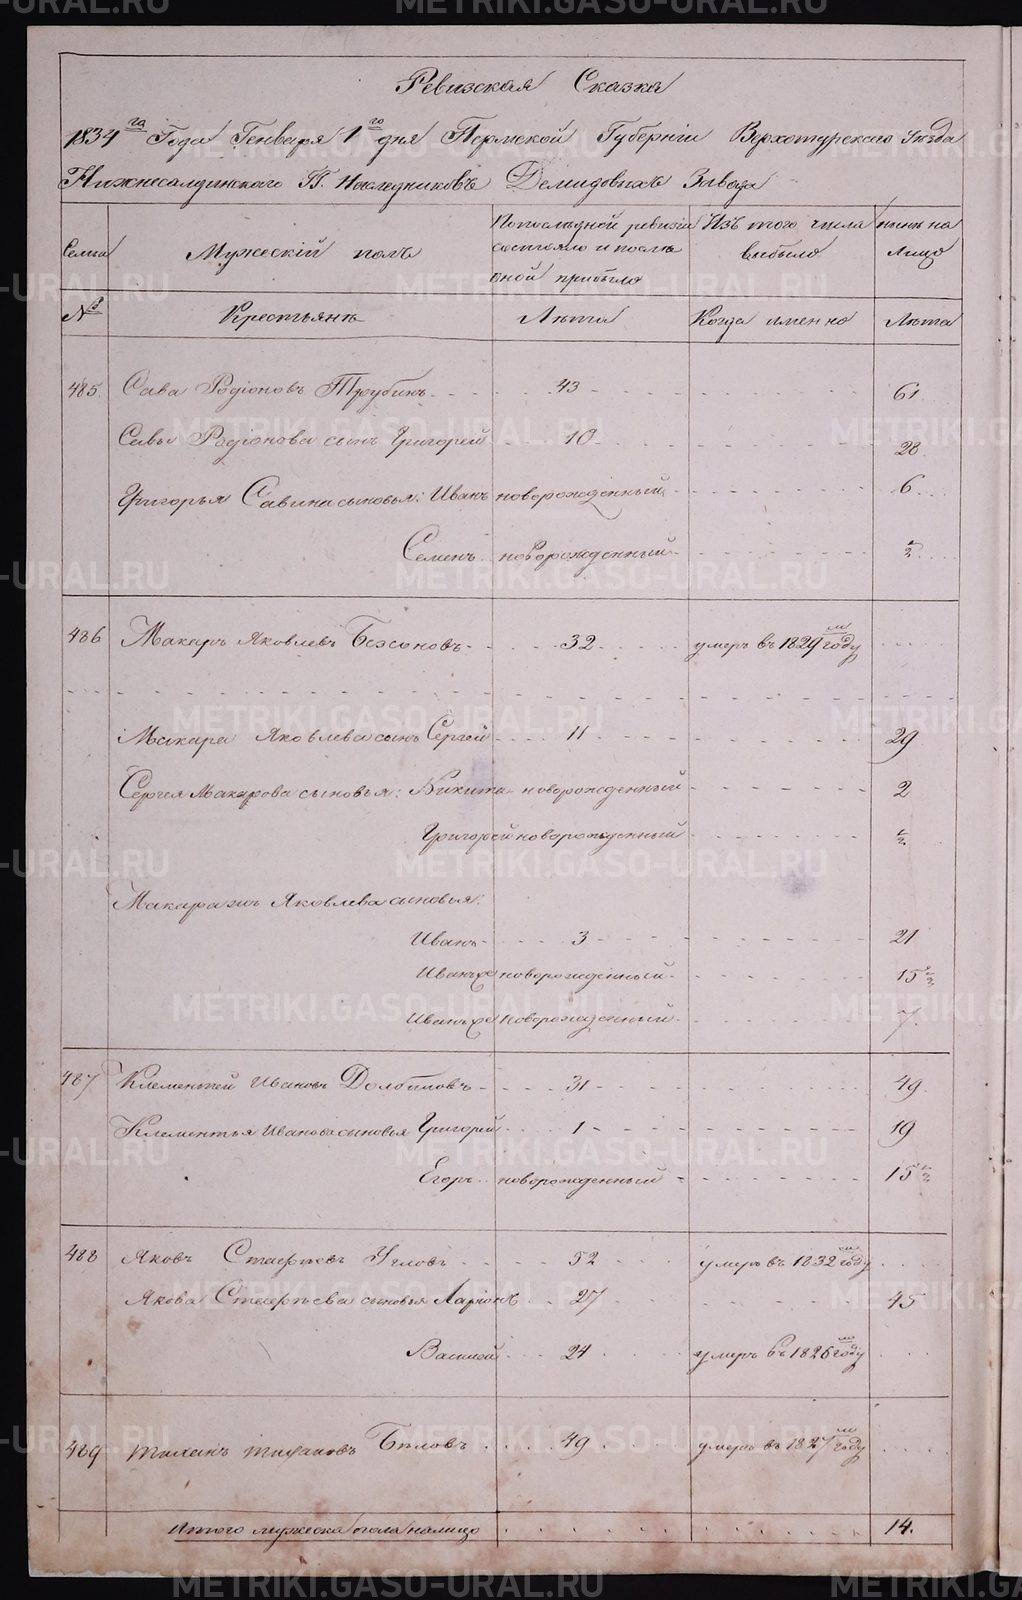 Ревизская Сказка
1834го Года Генваря 1го дня Пермской Губернiи Верхотурского Уезда
Нижнесалдинского Гг. Наследниковъ Демидовыхъ Завода
Семьи
Мужескiй полъ
По последней ревизiи состояло и после оной прибыло
Изъ того числа выбыло
ныне на лицо
№
Крестьянъ
Лета
Когда именно
Лета
485. Сава Родiоновъ Трубинъ 43 61
Савы Родiонова сынъ Григорей 10 28
Григорья Савина сыновья: Иванъ новорожденный 6
Семенъ новорожденный ½
486 Макаръ Яковлевъ Безсоновъ 32 умеръ въ 1829м году
Макара Яковлева сынъ Сергей 11 29
Сергея Макарова сыновья: Никита новорожденный 2
Григорей новорожденный ½
Макара жъ Яковлева сыновья:
Иванъ 3 21
Иванъ 2й новорожденный 15½
Иванъ 3й новорожденный 7
487 Клементей Ивановъ Долбиловъ 31 49
Клементья Иванова сыновья Григорей 1 19
Егоръ новорожденный 15½
488 Яковъ Угловъ 52 умеръ въ 1832м году
Якова сыновья Ларiонъ 27 45
Василей 24 умеръ въ 1826м году
489 Беловъ 49 умеръ въ 1827м году
Итого мужеска пола налицо 14.
METRIKI.GASO-URAL.RU